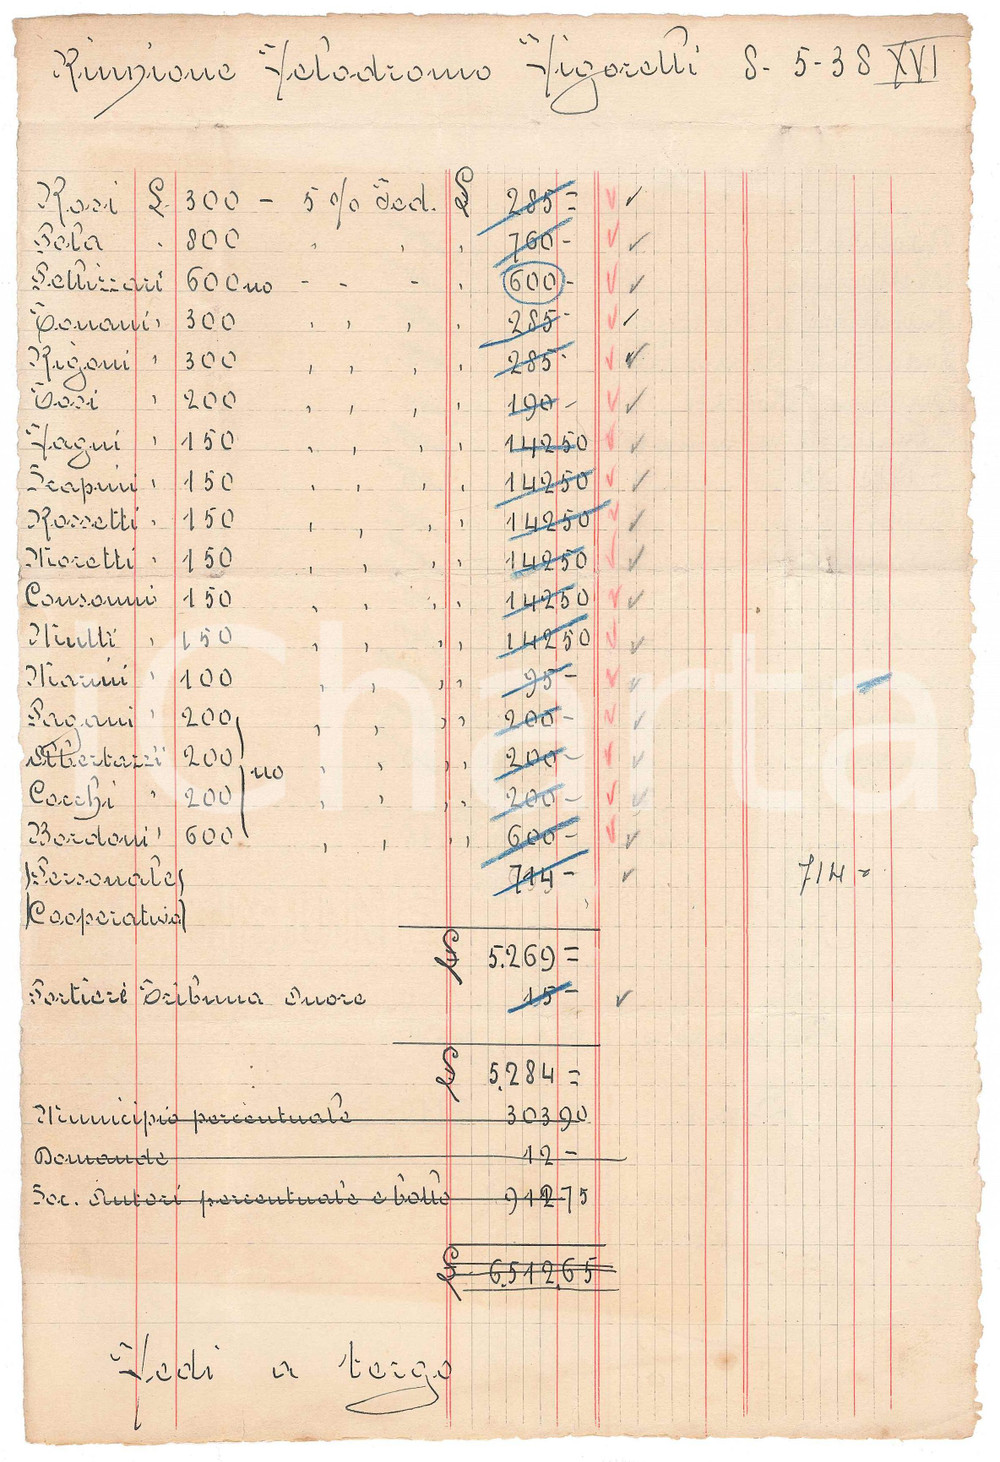 Riunione Velodromo Vigorelli 8-5-38 XVI
Rosi £ 300 - 5% Fed. £ 285=
Pola . 800 , , , 760-
Pellizzari 600 no - - - , 600-
Bonani , 300 , , , , 285-
Rigoni , 300 , , , , 285-
Bosi , 200 , , , , 190-
Vagni , 150 , , , , 14250
Scapini , 150 , , , , 14250
Rossetti , 150 , , , , 14250
Moretti , 150 , , , , 14250
Consonni 150 , , , , 14250
Mutti , 150 , , , , 14250
Marini , 100 , , , , 95-
Pagani , 200 , , , , 200-
Albertazzi 200 no , , , , 200-
Cocchi , 200 , , , , 200-
Bordoni , 600 , , , , 600-
(Personale) 714- 714=
(Cooperativa)
£ 5.269=
Portieri Tribuna Onore 15-
£ 5.284=
Municipio percentuale 30390
Domande 12-
Soc. Autori percentuale e bollo 91275
£ 6.512,65
Vedi a tergo
Charta